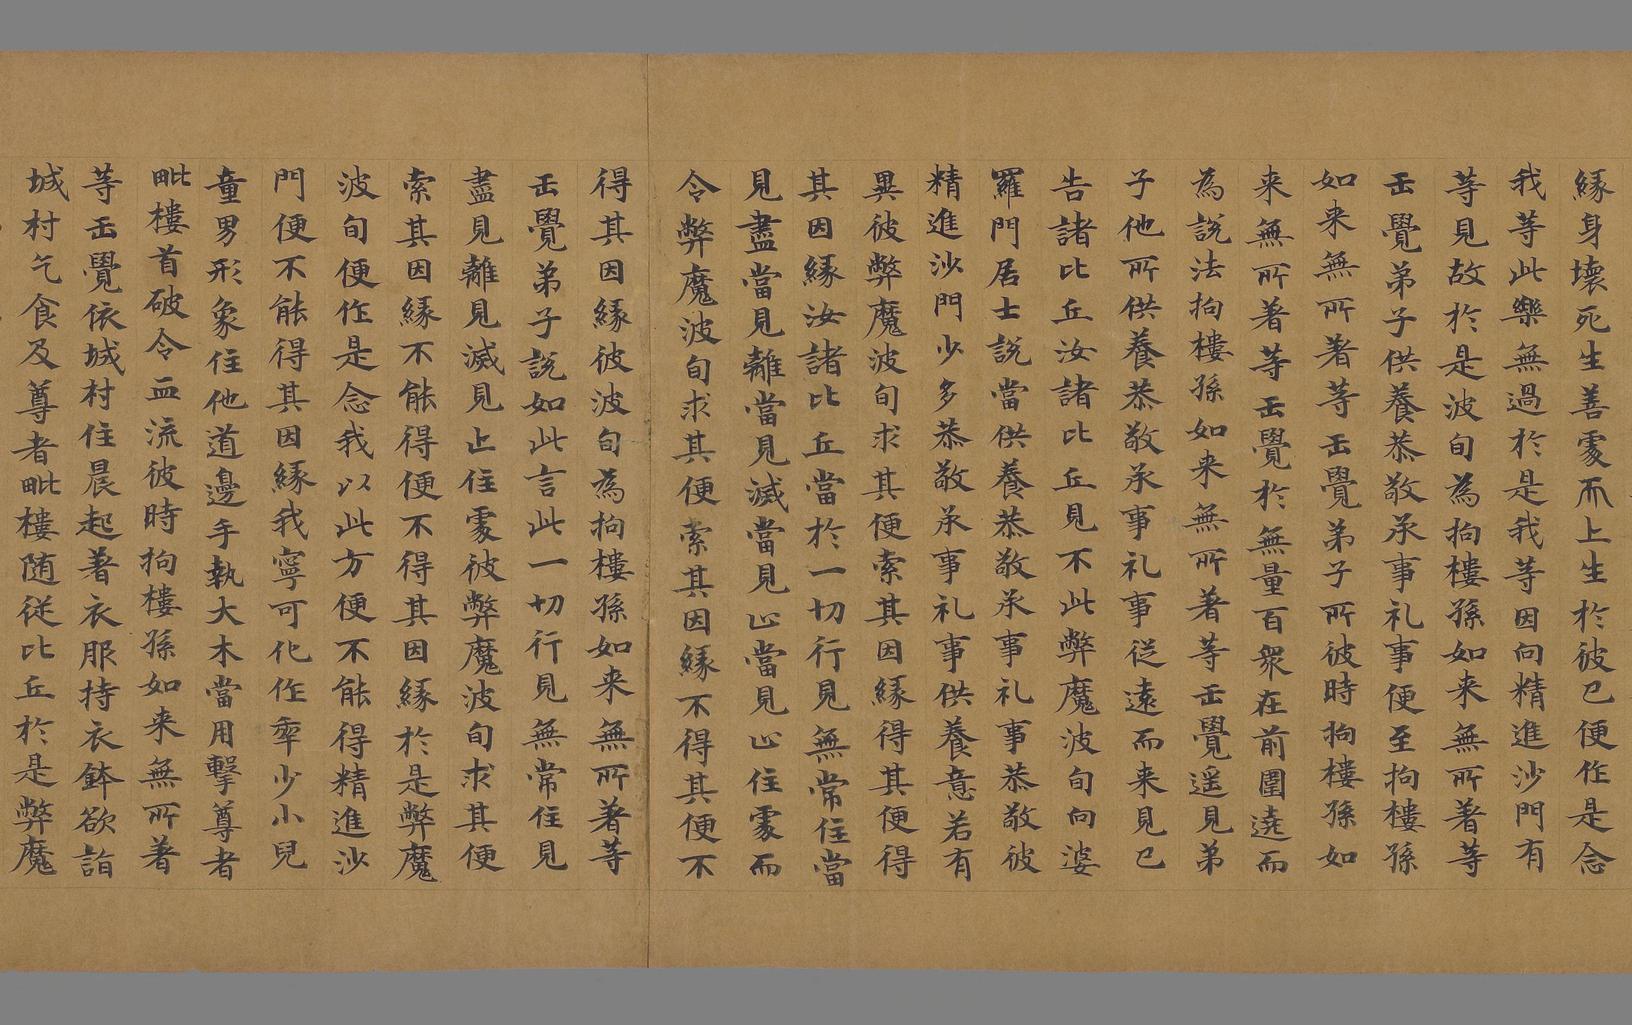 緣身壞死生善處而上生於彼已便作是念
我等此樂無過於是我等因向精進沙門有
等見故於是波旬為拘樓孫如来無所著等
正覺弟子供養恭敬承事礼事便至拘樓孫
如来無所著等正覺弟子所彼時拘樓孫如
来無所著等正覺於無量百衆在前圍遶而
為說法拘樓孫如来無所著等正覺遥見弟
子他所供養恭敬承事礼事從遠而来見已
告諸比丘汝諸比丘見不此弊魔波旬向婆
羅門居士說當供養恭敬承事礼事恭敬彼
精進沙門少多恭敬承事礼事供養意若有
異彼弊魔波旬求其便索其因緣得其便得
其因緣汝諸比丘當於一切行見無常住當
見盡當見離當見滅當見止當見止住處而
令弊魔波旬求其便索其因緣不得其便不
得其因緣彼波旬為拘樓孫如来無所著等
正覺弟子說如此言此一切行見無常住見
盡見離見滅見止住處彼弊魔波旬求其便
索其因緣不能得便不得其因緣於是弊魔
波旬便作是念我以此方便不能得精進沙
門便不能得其因緣我寧可化作年少小兒
童男形象住他道邊手執大木當用擊尊者
毗樓首破令血流彼時拘樓孫如来無所著
等正覺依城村住晨起著衣服持衣鉢欲詣
城村乞食及尊者毗樓随從比丘於是弊魔